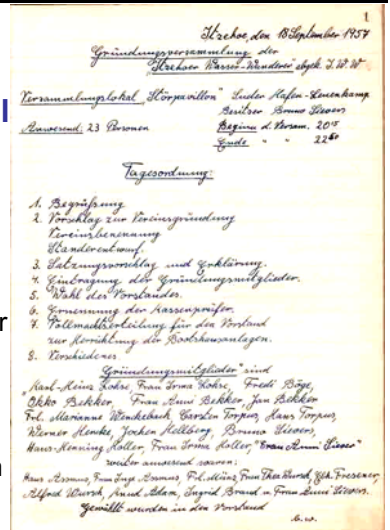 1
Itzehoe, den 18 September 1957
Gründungsversammlung der
"Itzehoer Wasser-Wanderer" abgek. I.W.W
Versammlungslokal "Störpavillon" Suder Hafen-Leuenkamp
Besitzer Bruno Sievers
Anwesend: 23 Personen
Beginn d. Versam. 20 15
Ende " " 22
Tagesordnung:
1. Begrüßung
2. Vorschlag zur Vereinsgründung
Vereinsbenennung
Standerentwurf.
3. Satzungsvorschlag und Erklärung.
4. Eintragung der Gründungsmitglieder.
5. Wahl des Vorstandes.
6. Ernennung der Kassenprüfer.
7. Vollmachtserteilung für den Vorstand
zur Herrichtung der Bootshausanlagen.
8. Verschiedenes.
Gründungsmitglieder sind
"Karl-Heinz Lohse, Frau Irma Lohse, Fredi Böge,
Okko Bekker, Frau Anni Bekker, Jan Bekker
Frl. Marianne Wenckebach, Carsten Torpus, Hans Torpus,
Werner Hencke, Jochen Hellberg, Bruno Sievers,
Hans-Henning Holler, Frau Irma Holler, "Frau Anni Siever"
weiter anwesend waren:
Hans Asmus, Frau Inge Asmus, Frau Thea Wursd, Fresener,
Alfred Wursd, Adam, Ingrid Brand u Frau Anni Sievers.
Gewählt wurden in den Vorstand
b.w.
l
r